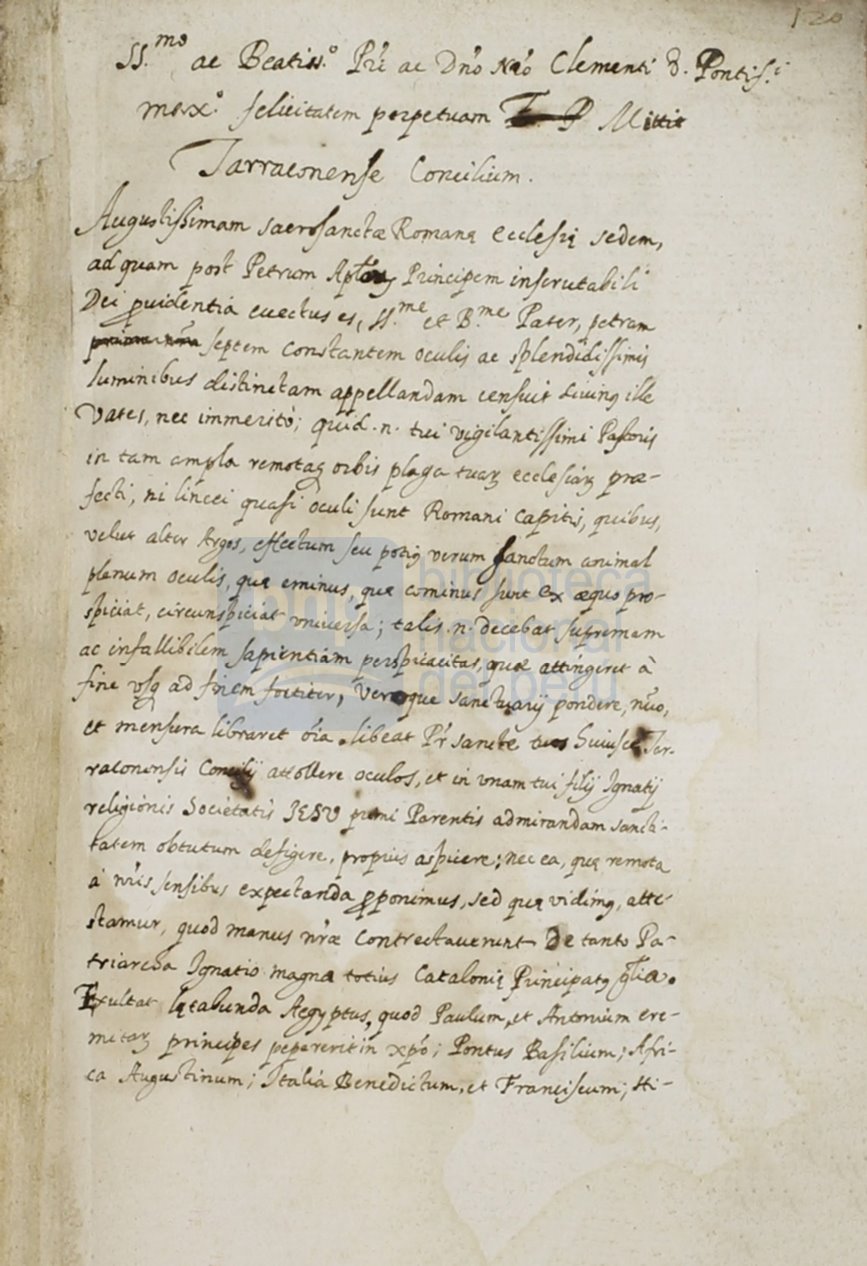 120
SS.mo ac Beatiss.o P̃ri ac Dño Nrõ Clementi 8. Pontif.i
max.o felicitatem perpetuam Mittit
Tarraconense Concilium.
Augustissimam sacrosanctæ Romanę ecclesię sedem,
ad quam post Petrum Principem inscrutabili
Dei ꝓuidentia euectus es, SS.me et B.me Pater, petram
septem constantem oculis ac splendidissimis
luminibus distinctam appellandam censuit diuinꝰ ille
Vates, nec immeritò; quid .n. tui vigilantissimi Pastoris
in tam ampla remotaꝗ orbis plaga tuaꝝ ecclesiaꝝ præ-
fecti, ni lincei quasi oculi sunt Romani capitis, quibus,
velut alter Argos, effectum seu potiꝰ verum sanctum animal
plenum oculis, quę eminus, quę cominus sunt ex æquo pro-
spiciat, circunspiciat vniuersa; talis .n. decebat supremam
ac infallibilem sapientiam perspicacitas, quæ attingeret à
fine vsꝗ ad finem fortiter, veroque sanctuarij pondere, nũo,
et mensura libraret õia. libeat P̃r sancte tuos huiusce Tar-
raconensis Concilij attollere oculos, et in vnam tui filij Ignatij
religionis Societatis IESV primi Parentis admirandam sancti-
tatem obtutum defigere, propius aspicere; nec ea, quę remota
à nr̃is sensibus expectanda ꝓponimus, sed quę vidimꝰ, atte-
stamur, quod manus nr̃æ contrectauerunt De tanto Pa-
triarcha Ignatio magna totius Catalonię Principatꝰ gl̃ia.
Exultat lętabunda Aegyptus, quod Paulum, et Antonium ere-
mitaꝝ principes pepererit in xp̃o; Pontus Basilium; Afri-
ca Augustinum; Italia Benedictum, et Franciscum; Hi-
biblioteca
nacional
del perú